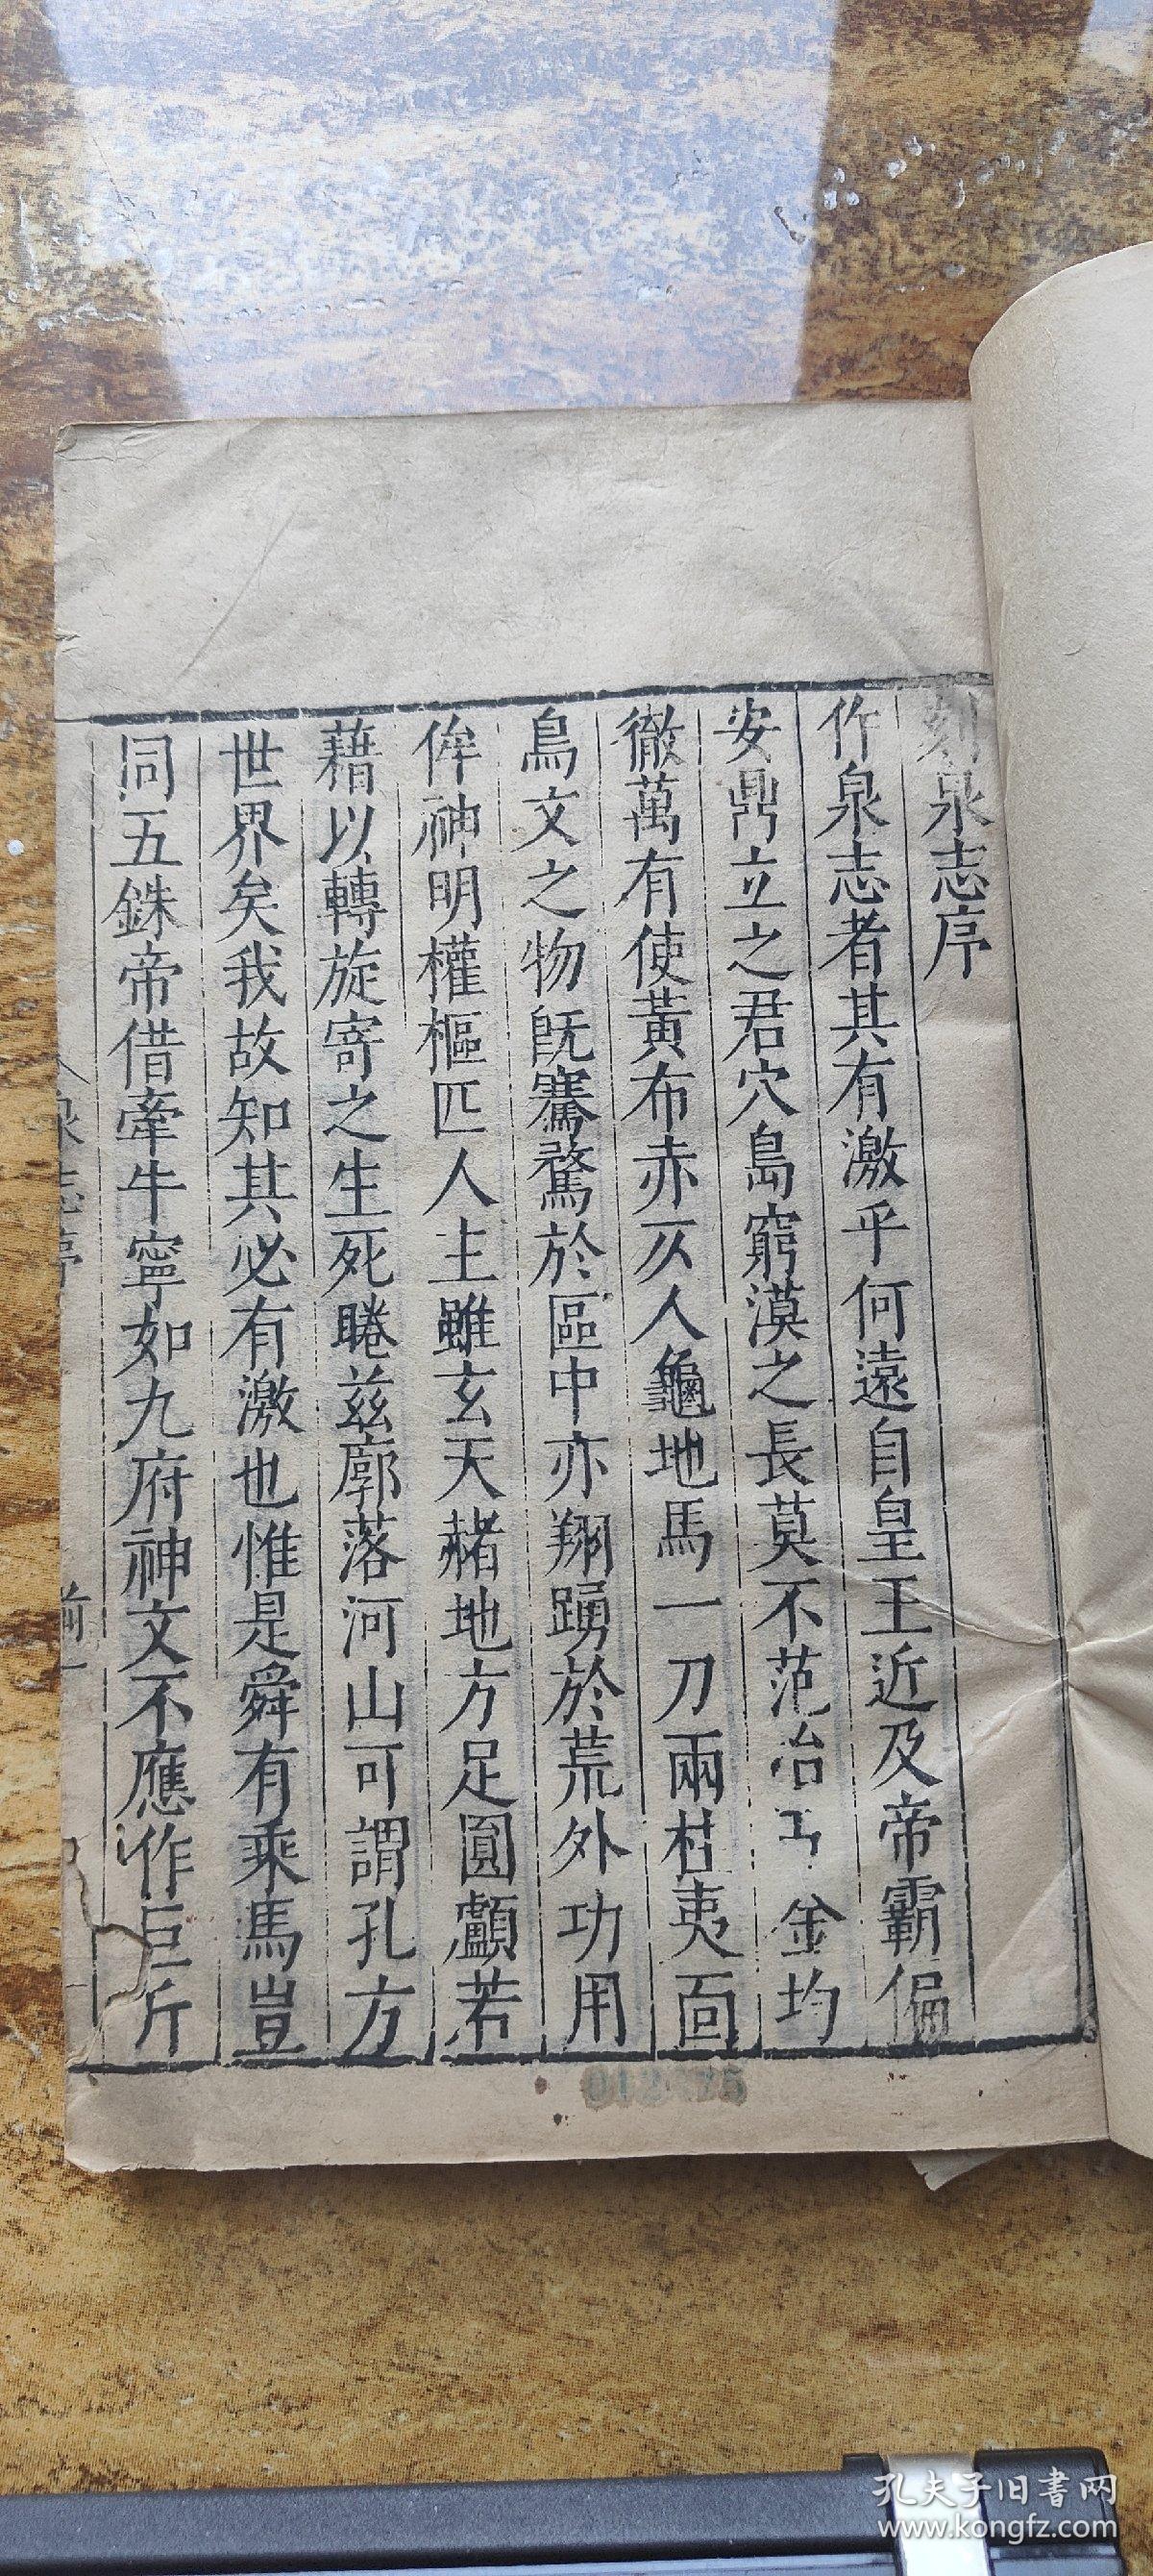 刻泉志序
作泉志者其有激乎何遠自皇王近及帝霸偏
安鼎立之君穴島窮漠之長莫不范冶 金均
徹萬有使黃布赤仄人龜地馬一刀兩柱夷面
鳥文之物旣騫騖於區中亦翔踴於荒外功用
侔神明權樞匹人主雖玄天赭地方足圓顱若
藉以轉旋寄之生死睠茲廓落河山可謂孔方
世界矣我故知其必有激也惟是舜有乘馬豈
同五銖帝借牽牛寧如九府神文不應作巨斤
泉志序
前一
01275
孔夫子旧書网
www.kongfz.com